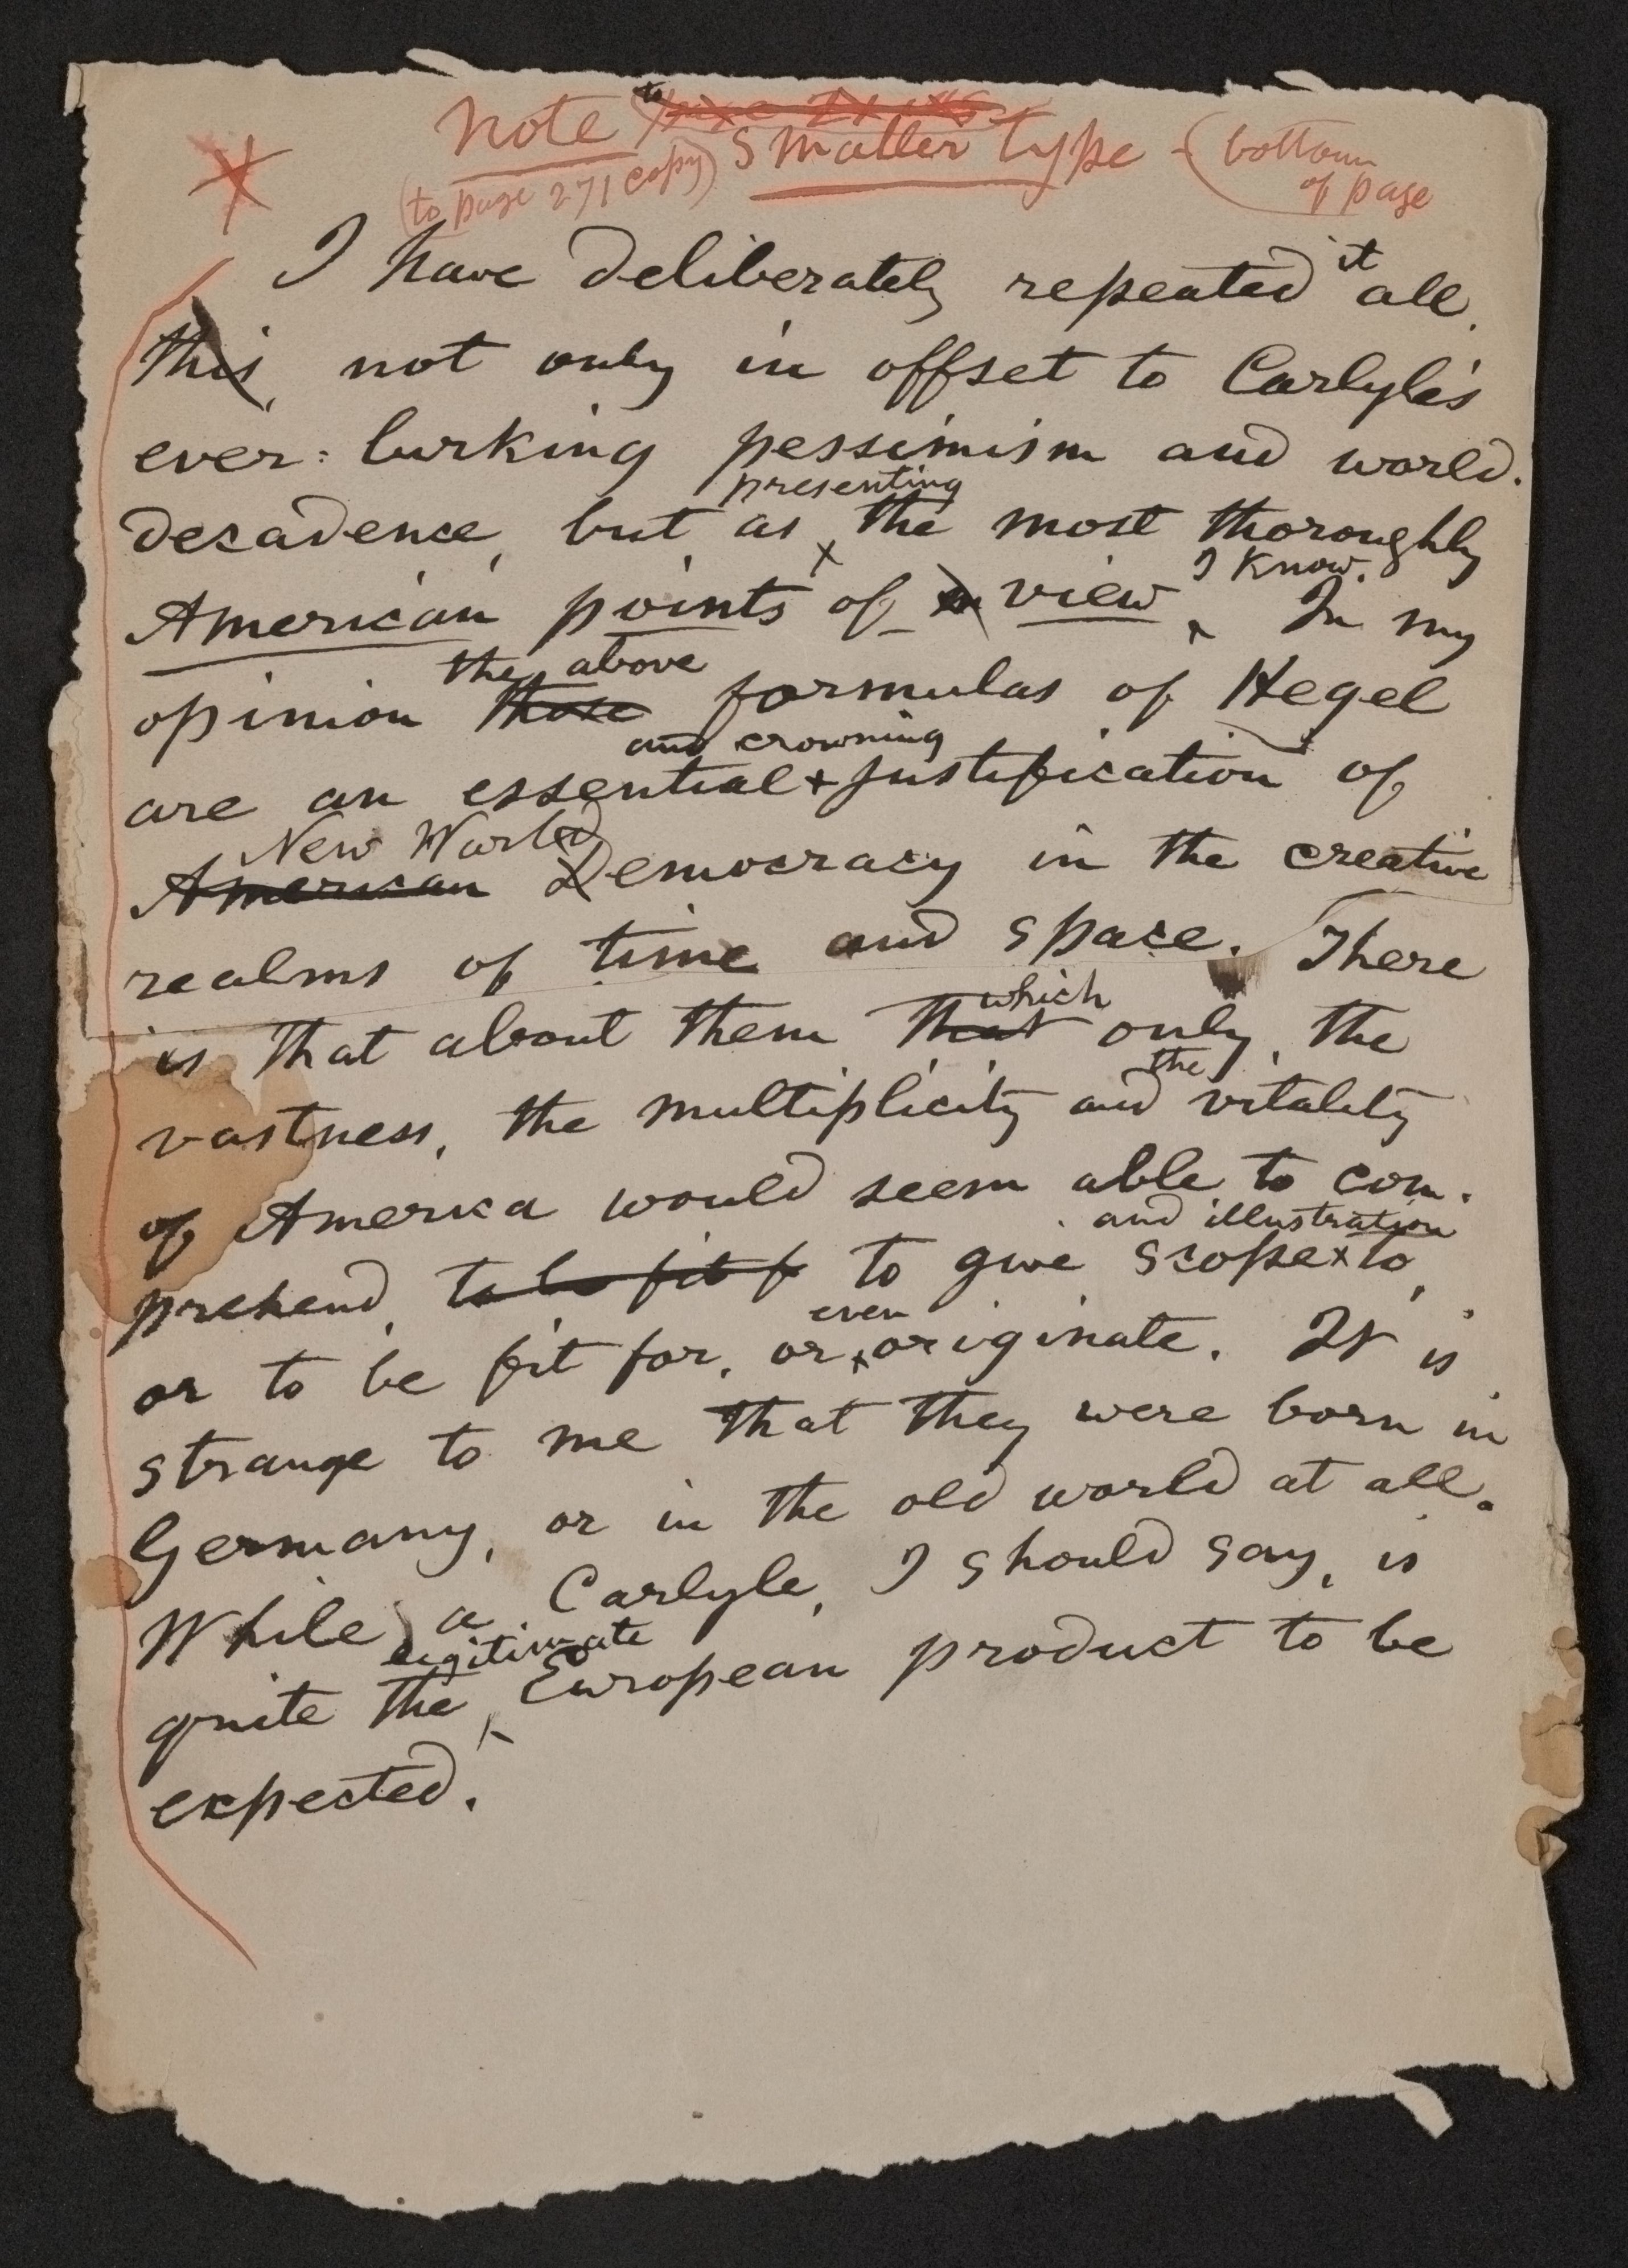 note to smaller type – (bottom
(to page 271 copy) of page
I have deliberately repeated it all,
this, not only in offset to Carlyle's
ever-lurking pessimism and world-
presenting
decadence, but as the most thoroughly
I know.
American points of view In my
the above
opinion those formulas of Hegel
and crowning
are an essential justification of
New World
American Democracy in the creative
realms of time and space. There
which
is that about them that only the
the
vastness, the multiplicity and vitality
of America would seem able to com-
and illustration
prehend, to be fit f to give scope to,
even
or to be fit for, or originate. It is
strange to me that they were born in
Germany, or in the old world at all.
While a Carlyle, I should say, is
legitimate
quite the European product to be
expected.